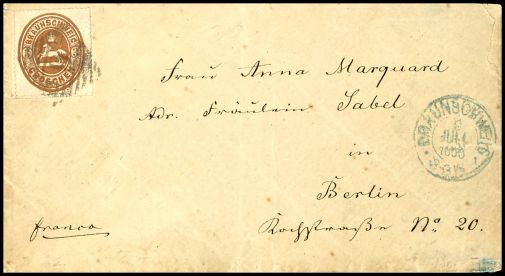 BRAUNSCHWEIG
GROSCHEN
Frau Anna Marquard
Adr. Fräulein Sabel
in
Berlin
Kochstraße No. 20.
franco
BRAUNSCHWEIG
JULI